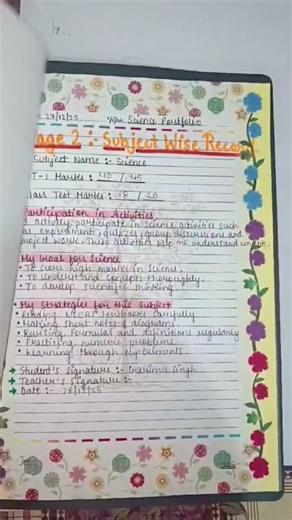 27/12/25 Science Portfolio
age 2 :- Subject Wise Reco
Subject Name :- Science
T-1 Marks : 40 / 45
lass Test Marks : 18 / 20
Participation in Activities
I actively participate in Science activities such
as experiments, quizzes, group discussions and
roject work. These activities help me understand
My Goal for Science
• To score high marks in Science.
• To understand concepts thoroughly.
• To develop scientific thinking.
My Strategies for this Subject
• Reading NCERT textbooks carefully
• Making short notes & diagrams.
• Revising formulas and definitions regularly
• Practising numeric problems.
• Learning through experiments.
→ Student's Signature :- Singh
→ Teacher's Signature :-
→ Date :- 26/12/25